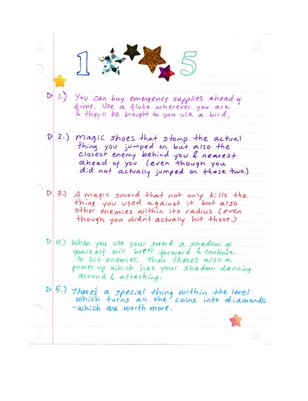 1 5
1.) You can buy emergency supplies ahead of
time. Use a flute wherever you are
& they'll be brought to you via a bird.
2.) Magic shoes that stomp the actual
thing you jumped on but also the
closest enemy behind you & nearest
ahead of you (even though you
did not actually jumped on those two.)
3.) A magic sword that not only kills the
thing you used against it but also
other enemies within its radius (even
though you didn't actually hit those.)
4.) When you use your sword a shadow of
yourself will burst forward & continue
to hit enemies. Then there's also a
power up which has your shadow dancing
around & attacking.
5.) There's a special thing within the level
which turns all the coins into diamonds
- which are worth more.